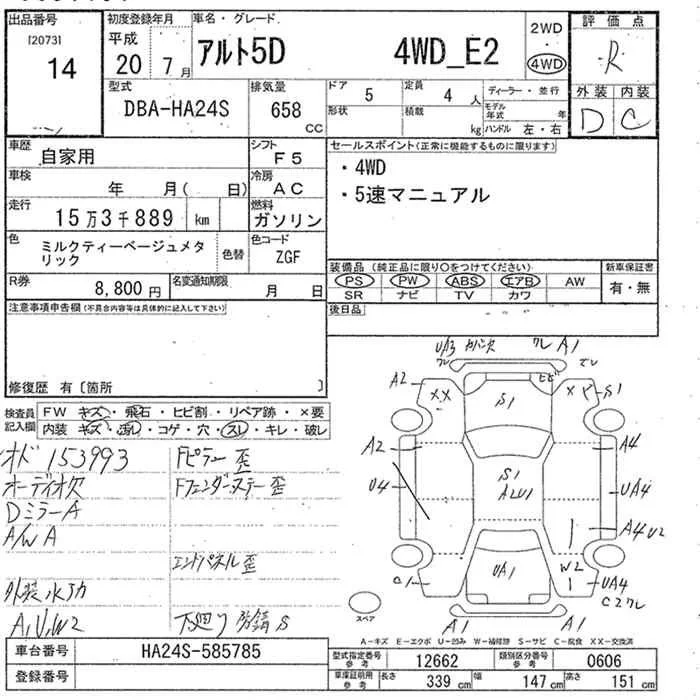 出品番号
[2073]
14
初度登録年月
平成
20 7月
車名・グレード
アルト5D 4WD_E2
2WD
4WD
評価点
R
外装 内装
D C
型式
DBA-HA24S
排気量
658 CC
ドア 5
定員 4人
形状
積載 kg
ディーラー・並行
モデル年式 年
ハンドル 左・右
車歴 自家用
シフト F5
車検 年 月( 日)
冷房 AC
走行 15万3千889 km
燃料 ガソリン
色 ミルクティーベージュメタリック
色替
色コード ZGF
R券 8,800円
名変通知期限 月 日
セールスポイント(正常に機能するものに限ります)
・4WD
・5速マニュアル
装備品(純正品に限り○をつけてください)
PS PW ABS エアB AW
SR ナビ TV カワ
新車保証書
有・無
後日品
注意事項申告欄(不具合内容等は具体的に記入して下さい)
修復歴 有〔箇所 〕
検査員記入欄
FW キズ・飛石・ヒビ割・リペア跡・×要
内装 キズ・汚レ・コゲ・穴・スレ・キレ・破レ
オド 153993
オーディオ欠
DミラーA
A/W A
外装
A1,U1,W2
Fピラー歪
Fフェンダーステー歪
エンドパネル歪
下廻り 防錆 S
UA3 ガバンス ワレ A1
A2
XX
S1
ヒビ
XX
S1
A2
A4
U4
S1
A2U1
UA4
A4 U2
C1
UA1
W2
UA4
C2ワレ
A1
A1
スペア
A-キズ E-エクボ U-凹み W-補修跡 S-サビ C-腐食 XX-交換済
車台番号 HA24S-585785
登録番号
型式指定番号 参考 12662
類別区分番号 参考 0606
車庫証明用 参考 長さ 339cm 幅 147cm 高さ 151cm